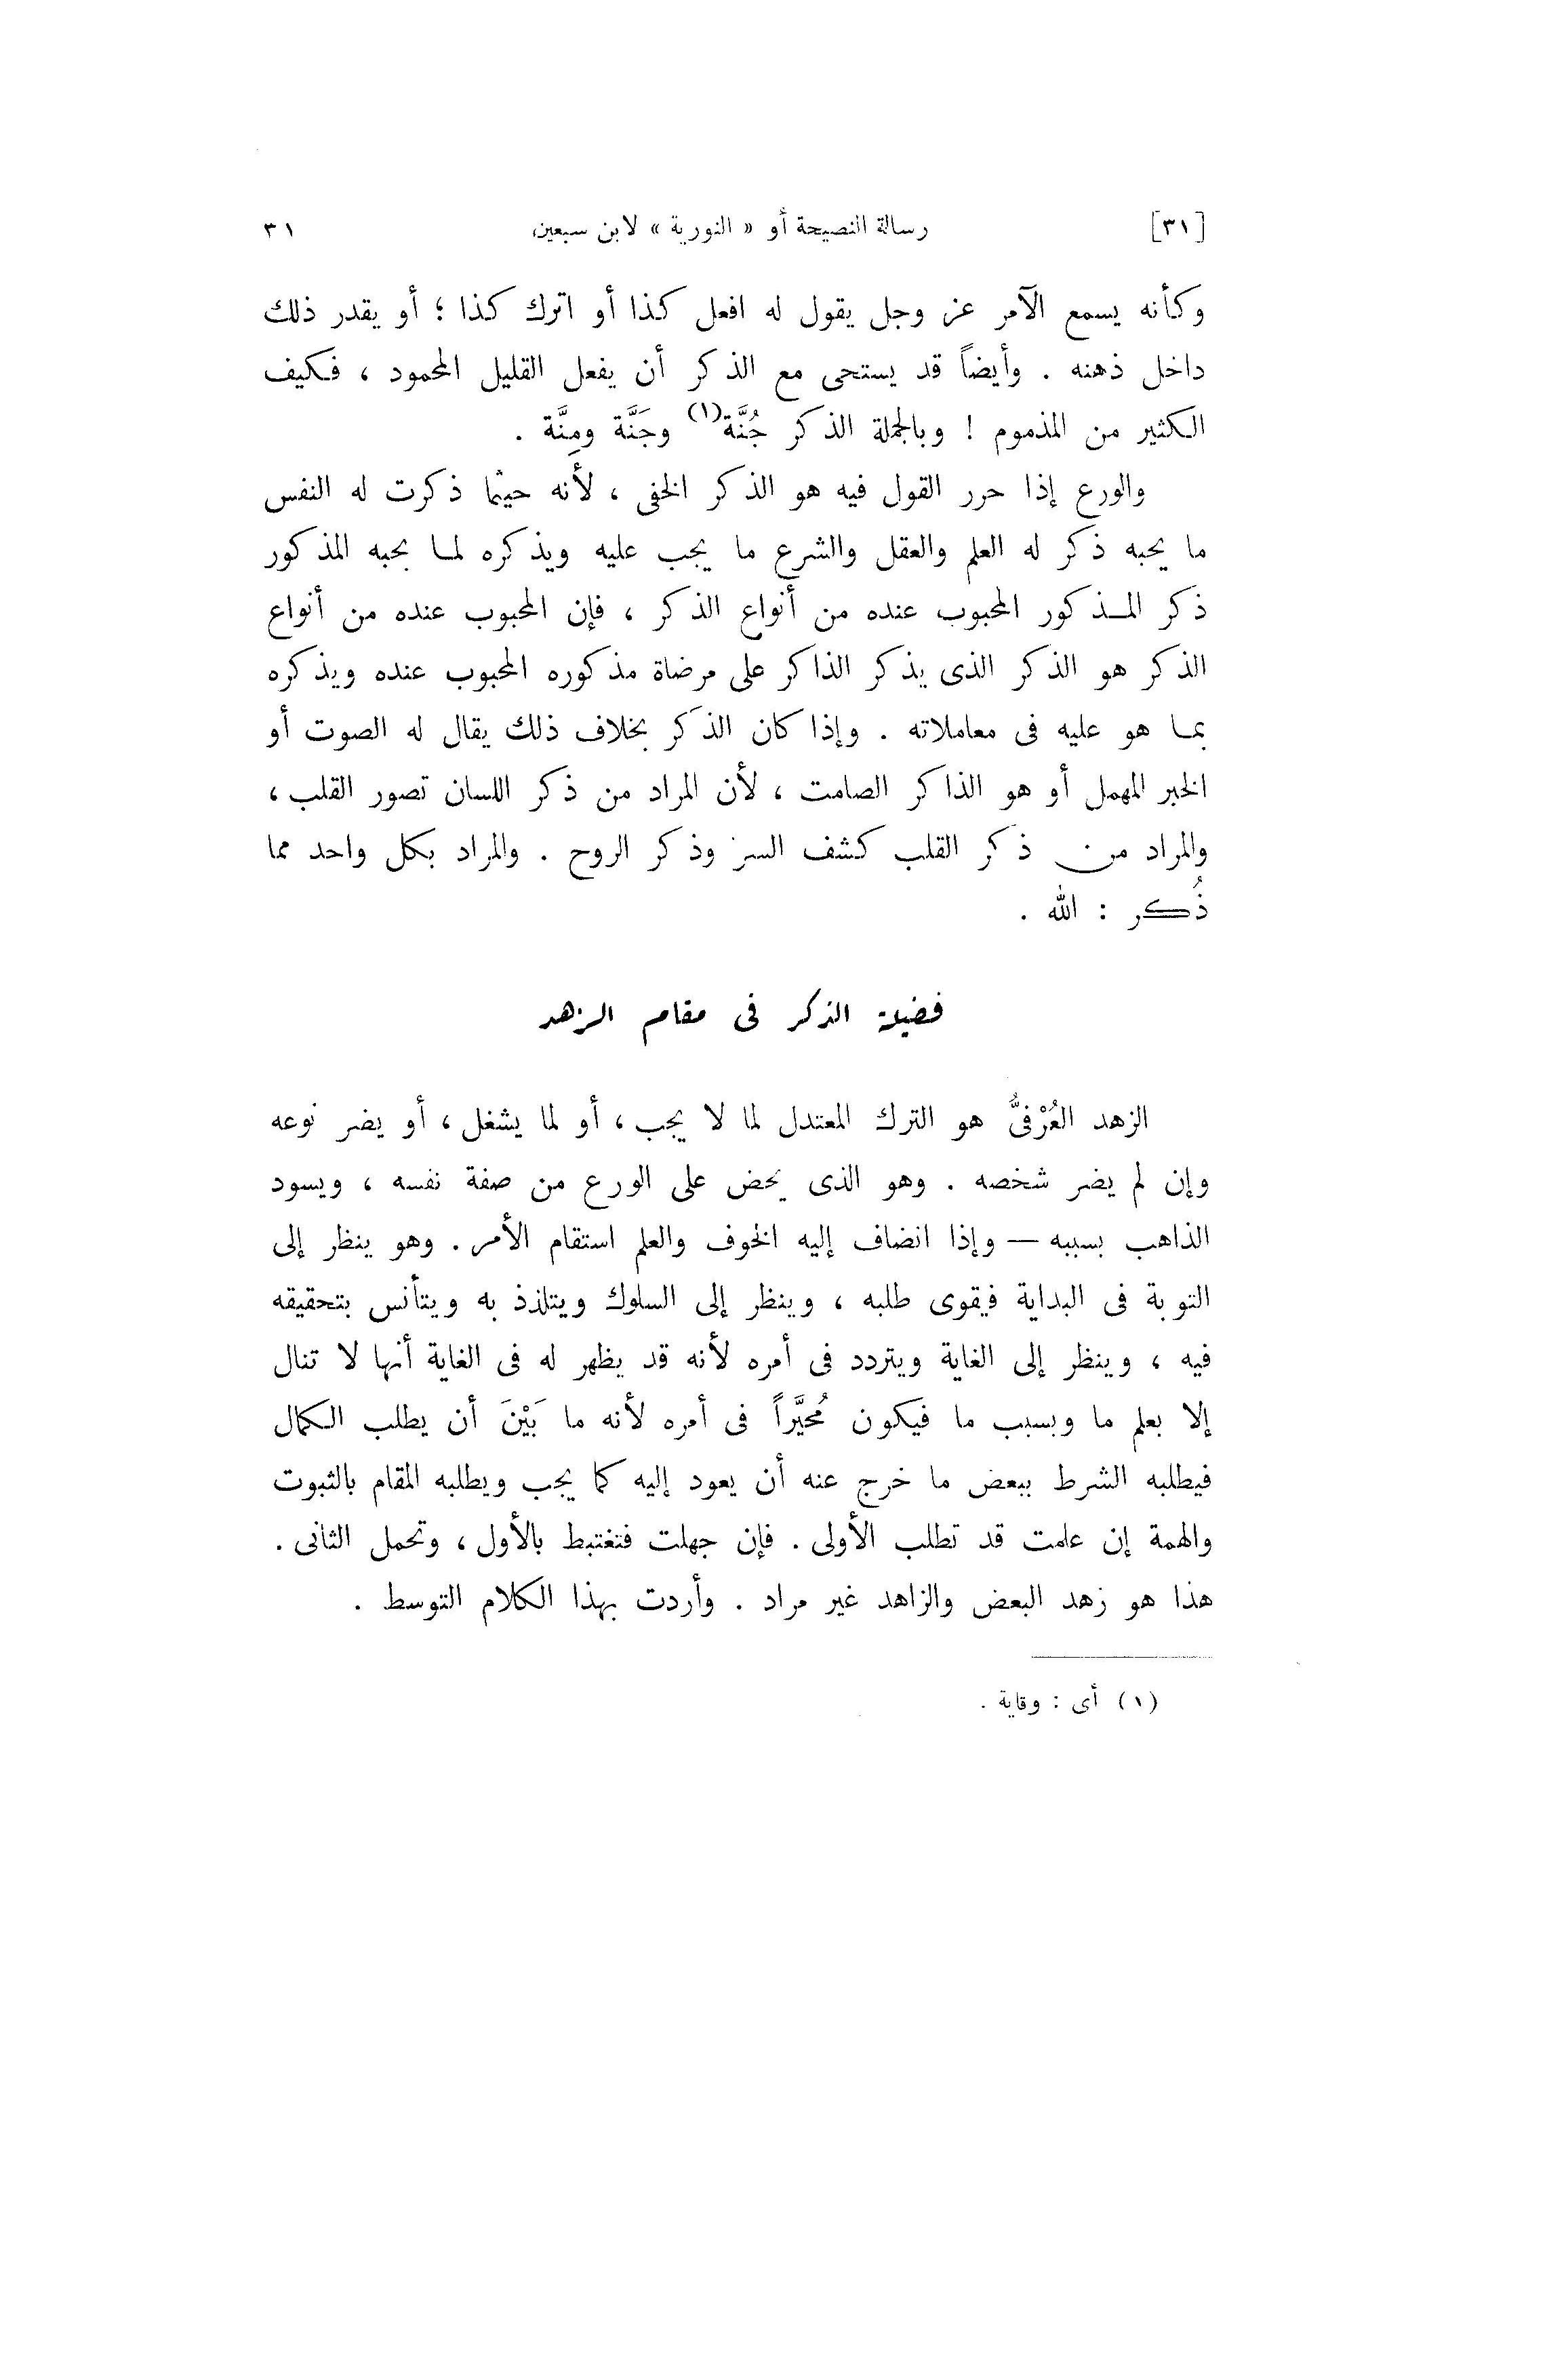 [٣١] رسالة النصيحة أو « النورية » لابن سبعين ٣١
وكأنه يسمع الآمر عز وجل يقول له افعل كذا أو اترك كذا ؛ أو يقدر ذلك
داخل ذهنه . وأيضاً قد يستحى مع الذكر أن يفعل القليل المحمود ، فكيف
الكثير من المذموم ! وبالجملة الذكر جُنَّة(١) وجَنَّة ومِنَّة .
والورع إذا حرر القول فيه هو الذكر الخفى ، لأنه حيثما ذكرت له النفس
ما يحبه ذكر له العلم والعقل والشرع ما يجب عليه ويذكره لما بحبه المذكور
ذكر المذكور المحبوب عنده من أنواع الذكر ، فإن المحبوب عنده من أنواع
الذكر هو الذكر الذى يذكر الذاكر على مرضاة مذكوره المحبوب عنده ويذكره
بما هو عليه فى معاملاته . وإذا كان الذكر بخلاف ذلك يقال له الصوت أو
الخبر المهمل أو هو الذاكر الصامت ، لأن المراد من ذكر اللسان تصور القلب ،
والمراد من ذكر القلب كشف السر وذكر الروح . والمراد بكل واحد مما
ذُكر : الله .
فضيلة الذكر فى مقام الزهد
الزهد العُرْفىُّ هو الترك المعتدل لما لا يجب ، أو لما يشغل ، أو يضر نوعه
وإن لم يضر شخصه . وهو الذى يحض على الورع من صفة نفسه ، ويسود
الذاهب بسببه — وإذا انضاف إليه الخوف والعلم استقام الأمر . وهو ينظر إلى
التوبة فى البداية فيقوى طلبه ، وينظر إلى السلوك ويتلذذ به ويتأنس بتحقيقه
فيه ، وينظر إلى الغاية ويتردد فى أمره لأنه قد يظهر له فى الغاية أنها لا تنال
إلا بعلم ما وبسبب ما فيكون مُحيَّراً فى أمره لأنه ما بَيْنَ أن يطلب الكمال
فيطلبه الشرط ببعض ما خرج عنه أن يعود إليه كما يجب ويطلبه المقام بالثبوت
والهمة إن علمت قد تطلب الأولى . فإن جهلت فتغتبط بالأول ، وتحمل الثانى .
هذا هو زهد البعض والزاهد غير مراد . وأردت بهذا الكلام التوسط .
(١) أى : وقاية .